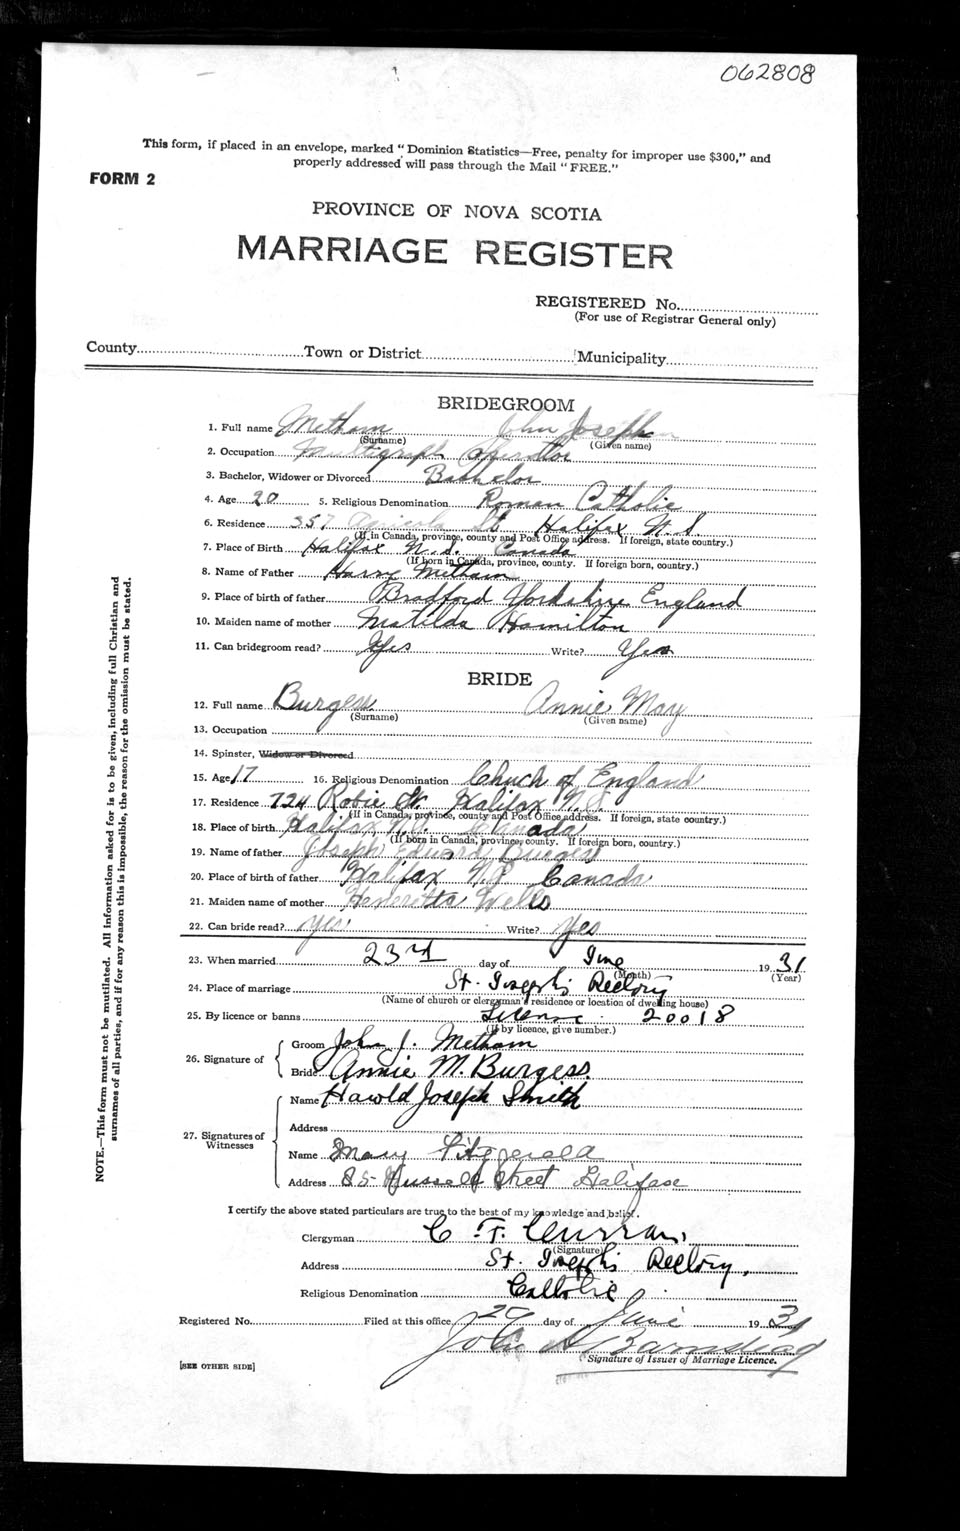 062808
This form, if placed in an envelope, marked "Dominion Statistics—Free, penalty for improper use $300," and
properly addressed will pass through the Mail "FREE."
FORM 2
PROVINCE OF NOVA SCOTIA
MARRIAGE REGISTER
REGISTERED No.
(For use of Registrar General only)
County Town or District Municipality
BRIDEGROOM
1. Full name Metham John Joseph
(Surname) (Given name)
2. Occupation Multigraph Operator
3. Bachelor, Widower or Divorced Bachelor
4. Age 20 5. Religious Denomination Roman Catholic
6. Residence 357 Agricola St. Halifax N.S.
(If in Canada, province, county and Post Office address. If foreign, state country.)
7. Place of Birth Halifax N.S. Canada
(If born in Canada, province, county. If foreign born, country.)
8. Name of Father Harry Metham
9. Place of birth of father Bradford Yorkshire England
10. Maiden name of mother Matilda Hamilton
11. Can bridegroom read? Yes Write? Yes
BRIDE
12. Full name Burgess Annie May
(Surname) (Given name)
13. Occupation
14. Spinster, Widow or Divorced
15. Age 17 16. Religious Denomination Chuch of England
17. Residence 724 Robie St. Halifax N.S.
(If in Canada, province, county and Post Office address. If foreign, state country.)
18. Place of birth Halifax N.S. Canada
(If born in Canada, province, county. If foreign born, country.)
19. Name of father Joseph Edward Burgess
20. Place of birth of father Halifax N.S. Canada
21. Maiden name of mother Henrietta Wells
22. Can bride read? Yes Write? Yes
23. When married 23rd day of June 1931
(Month) (Year)
24. Place of marriage St. Joseph's Rectory
(Name of church or clergyman's residence or location of dwelling house)
25. By licence or banns License 20018
(If by licence, give number.)
26. Signature of Groom John J. Metham
Bride Annie M. Burgess.
27. Signatures of Witnesses
Name Harold Joseph Smith
Address
Name Mary Fitzgerald
Address 85 Russell Street Halifax
I certify the above stated particulars are true to the best of my knowledge and belief.
Clergyman C. F. Curran.
(Signature)
Address St. Joseph's Rectory,
Religious Denomination Catholic
Registered No. Filed at this office 29 day of June 1931
John A Barnstead
Signature of Issuer of Marriage Licence.
[SEE OTHER SIDE]
NOTE.—This form must not be mutilated. All information asked for is to be given, including full Christian and
surnames of all parties, and if for any reason this is impossible, the reason for the omission must be stated.